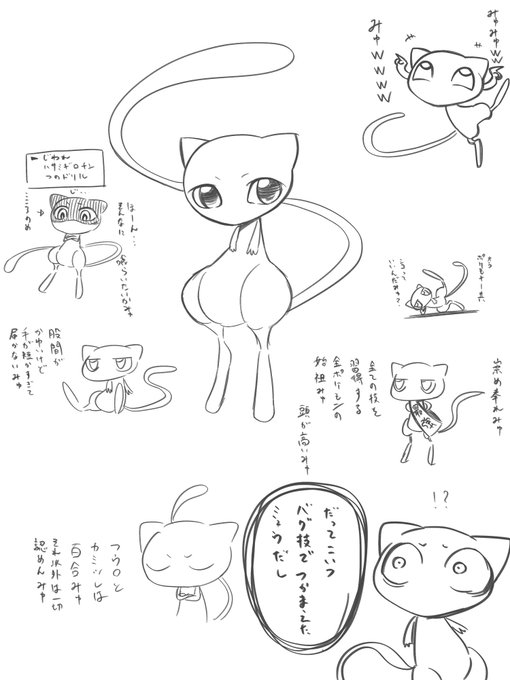 みゅみゅWW
みゅWWWW
じわれ
ハサミギロチン
つのドリル
じ…
ほーん…
そんなに
くらいたいかみゅ
股間が
かゆいけど
手が短かすぎて
届かないみゅ
いいんだみゅ?
崇め奉れみゅ
全ての技を
習得する
全ポケモンの
始祖みゅ
頭が高いみゅ
!?
だってこいつ
バグ技で
つかまえた
ミュウだし
フウロと
カミツレは
百合みゅ
それ以外は一切
認めんみゅ